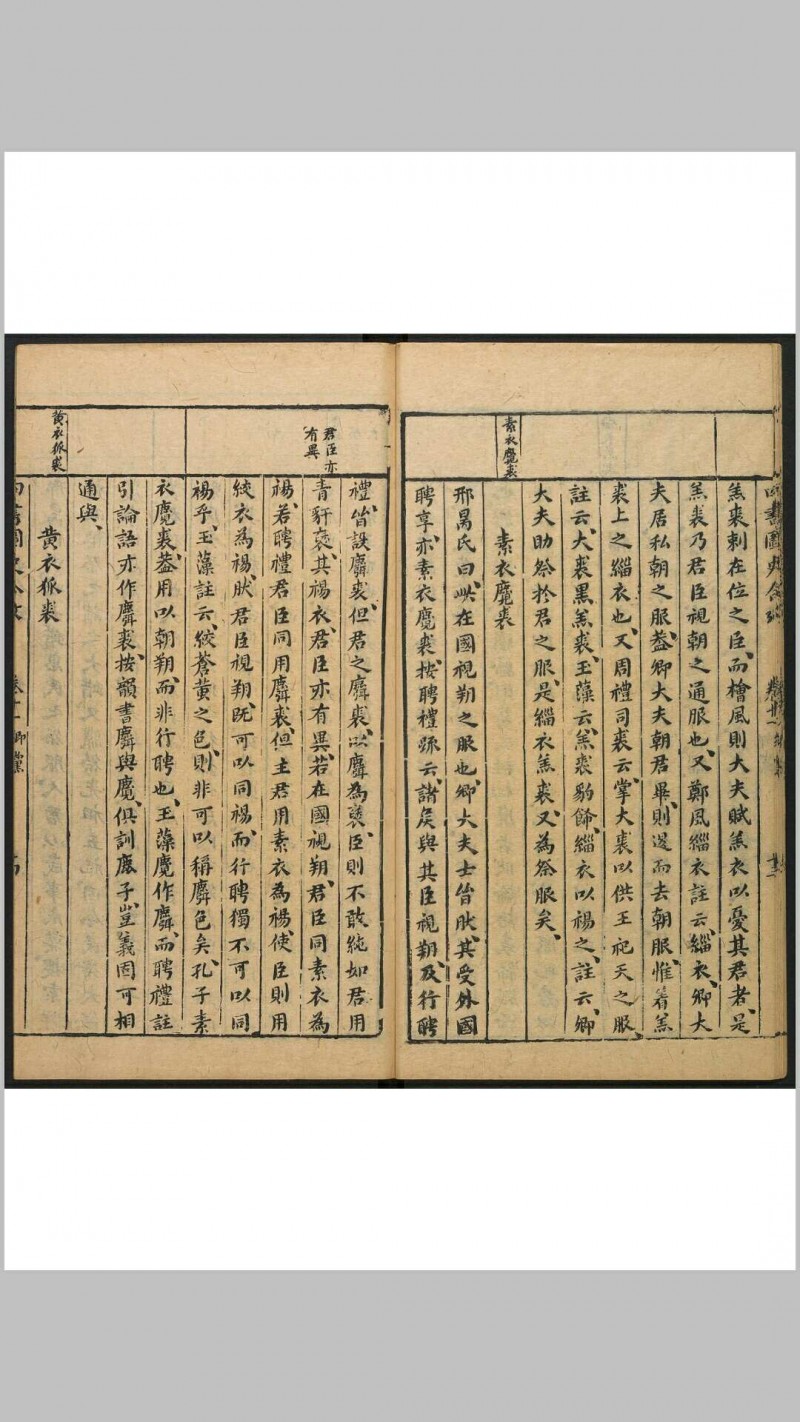 羔裘刺在位之臣、而檜風則大夫賦羔衣以憂其君者、是
羔裘乃君臣視朝之通服也、又鄭風緇衣註云、緇衣、卿大
夫居私朝之服、葢卿大夫朝君畢、則退而去朝服、惟着羔
裘上之緇衣也、又周禮司裘云、掌大裘以供王祀天之服、
註云、大裘黑羔裘、玉藻云、羔裘豹餙、緇衣以裼之、註云、卿
大夫助祭於君之服、是緇衣羔裘、又為祭服矣、
素衣麑裘
素衣麑裘
邢昺氏曰、此在國視朔之服也、卿大夫士皆肰、其受外國
聘享、亦素衣麑裘、按聘禮疏云、諸矦與其臣視朔、及行聘
禮、皆設麛裘、但君之麛裘、以麛為褎、臣則不敢純如君、用
君臣亦
有異
青豻褎、其裼衣、君臣亦有異、若在國視朔、君臣同素衣為
裼、若聘禮君臣同用麛裘、但主君用素衣為裼、使臣則用
絞衣為裼、肰君臣視朔、旣可以同裼、而行聘獨不可以同
裼乎、玉藻註云、絞蒼黄之色、則非可以稱麛色矣、孔子素
衣麑裘、葢用以朝朔、而非行聘也、玉藻麑作麛、而聘禮註
引論語亦作麛裘、按韻書麛與麑、俱訓鹿子、豈義固可相
通與、
黄衣狐裘
黄衣狐裘